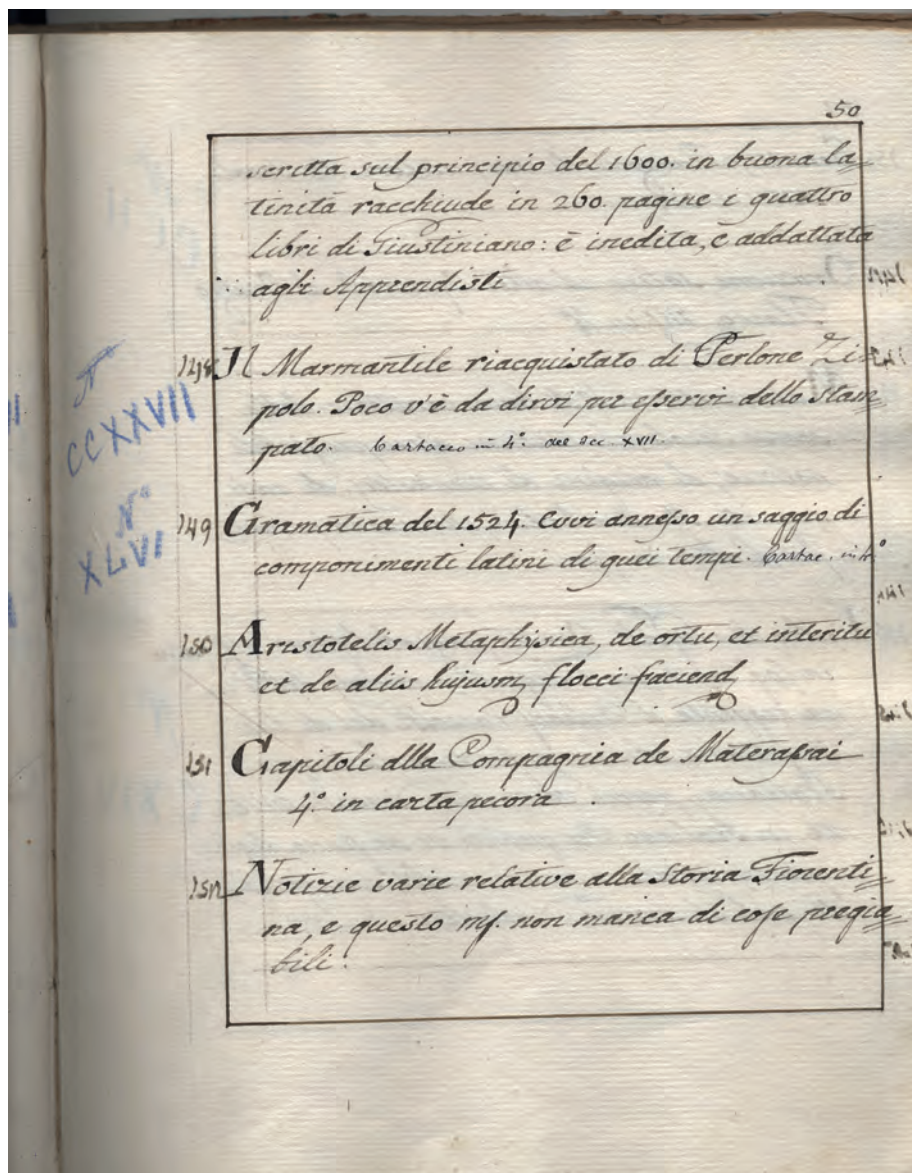 50
scritta sul principio del 1600. in buona la=
tinità racchiude in 260. pagine i quattro
libri di Giustiniano: è inedita, e addattata
agli Apprendisti
148 Il Marmantile riacquistato di Perlone Zi=
polo. Poco v'è da dirvi per eſservi dello stam=
pato. Cartaceo in 4.º del sec. XVII.
N°
CCXXVII
149 Gramatica del 1524. Evvi anneſso un saggio di
componimenti latini di quei tempi. Cartac. in 4º
N°
XLVI
150 Aristotelis Metaphysica, de ortu, et interitu
et de aliis hujusm, flocci faciend,
151 Capitoli dlla Compagnia de Materaſsai
4.º in carta pecora.
152 Notizie varie relative alla Storia Fiorenti=
na, e questo mſ. non manca di coſe pregia=
bili.